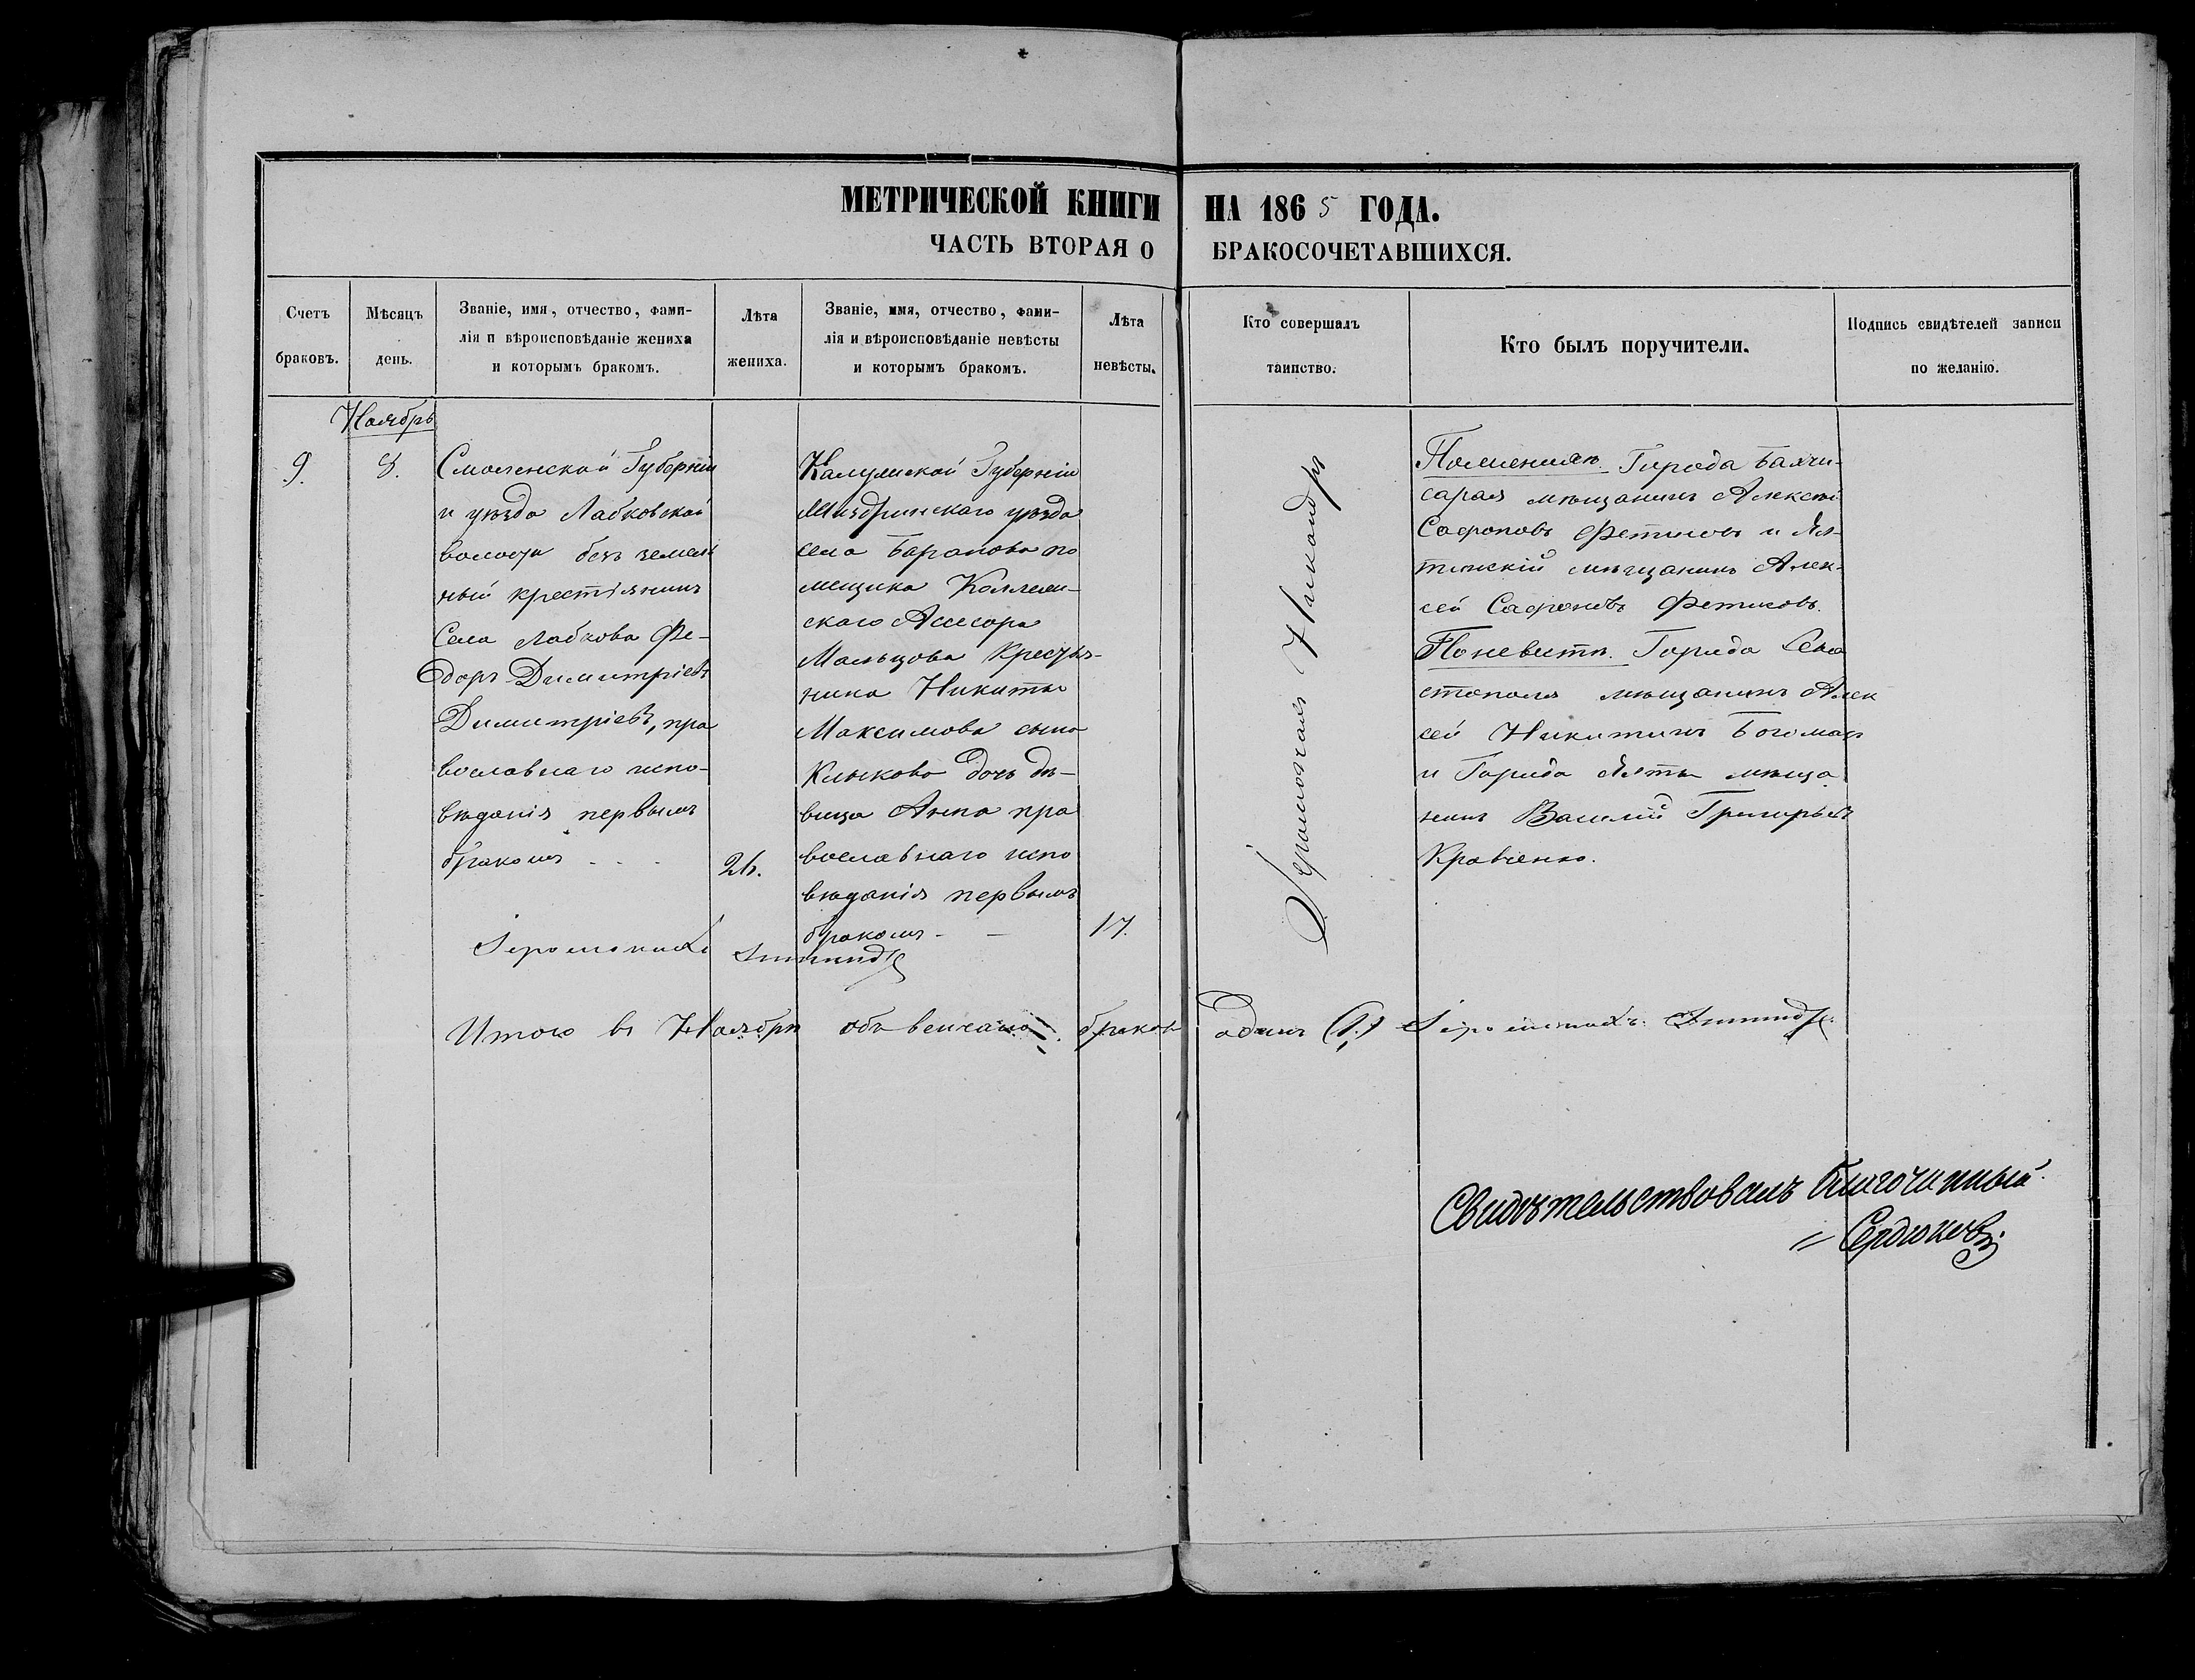 МЕТРИЧЕСКОЙ КНИГИ НА 1865 ГОДА.
ЧАСТЬ ВТОРАЯ О БРАКОСОЧЕТАВШИХСЯ.
Счетъ
браковъ.
Мѣсяцъ
день.
Званіе, имя, отчество, фами-
лія и вѣроисповѣданіе жениха
и которымъ бракомъ.
Лѣта
жениха.
Званіе, имя, отчество, фами-
лія и вѣроисповѣданіе невѣсты
и которымъ бракомъ.
Лѣта
невѣсты.
Кто совершалъ
таинство.
Кто былъ поручители.
Подпись свидѣтелей записи
по желанію.
Ноябрь
9.
8.
Смоленской Губерніи
и уѣзда Лабковской
волости безъ земель
ный крестьянинъ
Села Лабкова Фе-
доръ Димитріевъ
Димитріевъ, пра
вославнаго испо-
вѣданія первымъ
бракомъ
26.
Калужской Губерніи
уѣзда
села Баранова по
мещика Коллеж-
скаго Ассесора
Мальцова Крестья-
нина Никиты
Максимова сына
Клыкова дочь дѣ-
вица Анна пра
вославнаго испо
вѣданія первымъ
бракомъ
17.
Іеромонахъ Никандръ
По женихѣ. Города Бахчи-
сарая мѣщанинъ Алексѣй
Сафоновъ Фетисовъ и Ял-
тинскій мѣщанинъ Алек-
сей Сафоновъ Фетисовъ.
По невѣстѣ. Города Сева
стополя мѣщанинъ Алек
сей Никитинъ Богомаз
и Города Ялты мѣща
нинъ Василій Григорьевъ
Кравченко.
Іеромонахъ Никандръ
Итого въ Ноябрѣ обвенчано браковъ одинъ (1.) Іеромонахъ Никандръ.
Свидѣтельствовалъ Благочинный
Сердюковъ